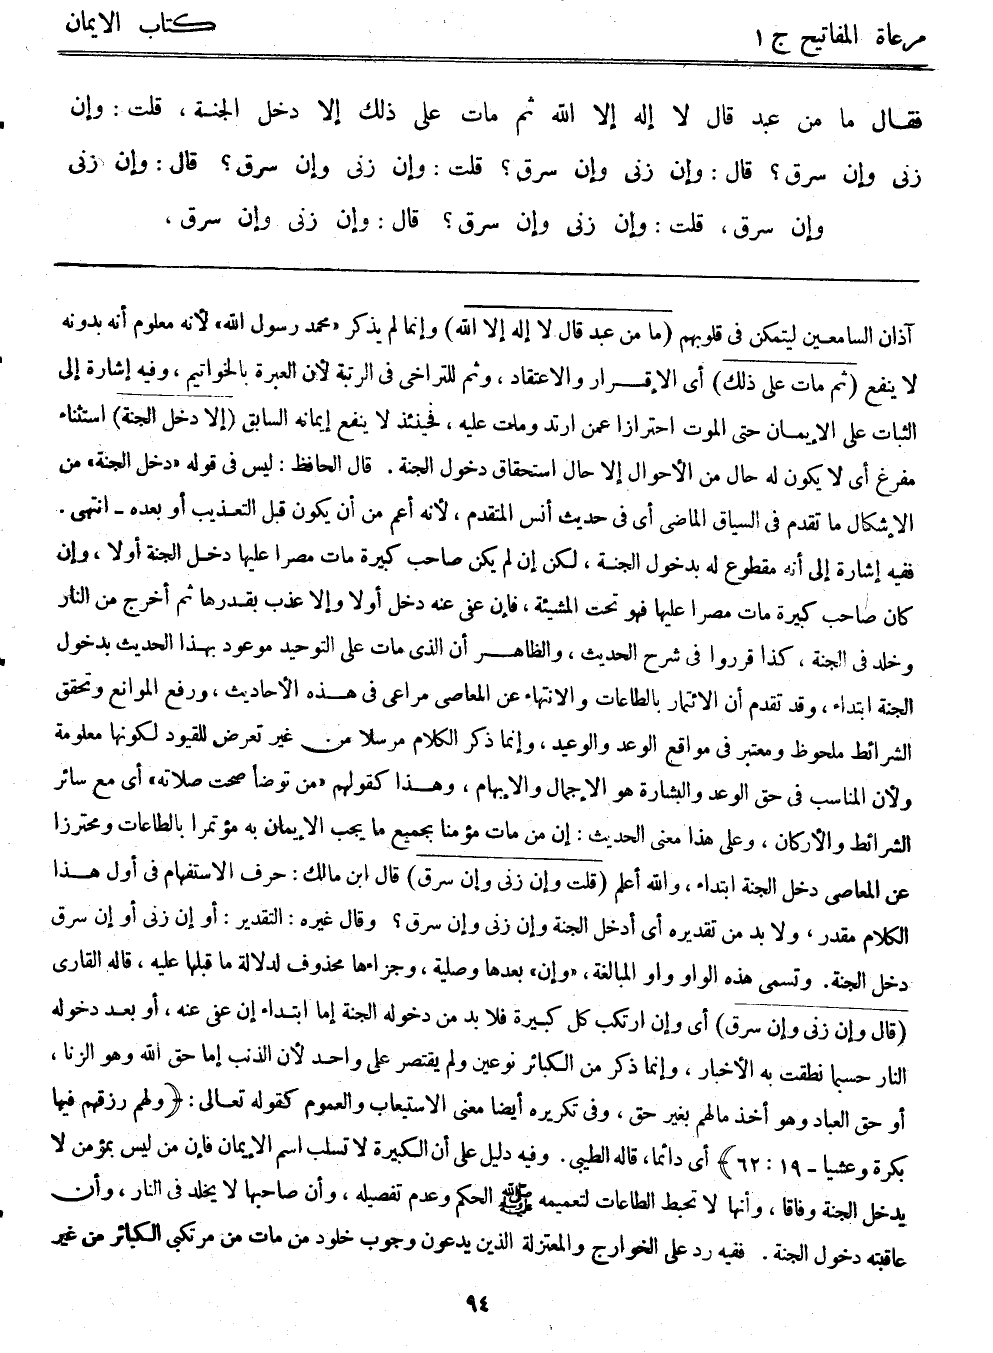 مرعاة المفاتيح ج ١
كتاب الايمان
فقال ما من عبد قال لا إله إلا الله ثم مات على ذلك إلا دخل الجنة ، قلت : وإن
زنى وإن سرق؟ قال : وإن زنى وإن سرق؟ قلت : وإن زنى وإن سرق؟ قال : وإن زنى
وإن سرق، قلت : وإن زنى وإن سرق؟ قال : وإن زنى وإن سرق ،
آذان السامعين ليتمكن فى قلوبهم (ما من عبد قال لا إله إلا الله) وإنما لم يذكر «محمد رسول الله» لأنه معلوم أنه بدونه
لا ينفع (ثم مات على ذلك) أى الإقرار والاعتقاد ، وثم للتراخى فى الرتبة لأن العبرة بالخواتيم ، وفيه إشارة إلى
الثبات على الايمان حتى الموت احترازا عمن ارتد ومات عليه ، فحينئذ لا ينفع إيمانه السابق (إلا دخل الجنة) استثناء
مفرغ أى لا يكون له حال من الأحوال إلا حال استحقاق دخول الجنة . قال الحافظ : ليس فى قوله «دخل الجنة» من
الإشكال ما تقدم فى السياق الماضى أى فى حديث أنس المتقدم ، لأنه أعم من أن يكون قبل التعذيب أو بعده ـ انتهى .
ففيه إشارة إلى أنه مقطوع له بدخول الجنة ، لكن إن لم يكن صاحب كبيرة مات مصرا عليها دخل الجنة أولا ، وإن
كان صاحب كبيرة مات مصرا عليها فهو تحت المشيئة ، فإن عفى عنه دخل أولا وإلا عذب بقدرها ثم أخرج من النار
وخلد فى الجنة ، كذا قرروا فى شرح الحديث ، والظاهر أن الذى مات على التوحيد موعود بهذا الحديث بدخول
الجنة ابتداء ، وقد تقدم أن الائتمار بالطاعات والانتهاء عن المعاصى مراعى فى هذه الأحاديث ، ورفع الموانع وتحقق
الشرائط ملحوظ ومعتبر فى مواقع الوعد والوعيد ، وإنما ذكر الكلام مرسلا من غير تعرض للقيود لكونها معلومة
ولأن المناسب فى حق الوعد والبشارة هو الإجمال والإبهام ، وهذا كقولهم «من توضأ صحت صلاته» أى مع سائر
الشرائط والأركان ، وعلى هذا معنى الحديث : إن من مات مؤمنا بجميع ما يجب الايمان به مؤتمرا بالطاعات ومحترزا
عن المعاصى دخل الجنة ابتداء ، والله أعلم (قلت وإن زنى وإن سرق) قال ابن مالك : حرف الاستفهام فى أول هذا
الكلام مقدر ، ولا بد من تقديره أى أدخل الجنة وإن زنى وإن سرق؟ وقال غيره : التقدير : أو إن زنى أو إن سرق
دخل الجنة. وتسمى هذه الواو واو المبالغة ، «وإن» بعدها وصلية ، وجزاءها محذوف لدلالة ما قبلها عليه ، قاله القارى
(قال وإن زنى وإن سرق) أى وإن ارتكب كل كبيرة فلا بد من دخوله الجنة إما ابتداء إن عفى عنه ، أو بعد دخوله
النار حسبما نطقت به الأخبار ، وإنما ذكر من الكبائر نوعين ولم يقتصر على واحد لأن الذنب إما حق الله وهو الزنا ،
أو حق العباد وهو أخذ مالهم بغير حق ، وفى تكريره أيضا معنى الاستيعاب والعموم كقوله تعالى : ﴿ولهم رزقهم فيها
بكرة وعشيا ـ ١٩ : ٦٢﴾ أى دائما، قاله الطيبى. وفيه دليل على أن الكبيرة لا تسلب اسم الإيمان فإن من ليس بمؤمن لا
يدخل الجنة وفاقا ، وأنها لا تحبط الطاعات لتعميمه ﷺ الحكم وعدم تفصيله ، وأن صاحبها لا يخلد فى النار ، وأن
عاقبته دخول الجنة . ففيه رد على الخوارج والمعتزلة الذين يدعون وجوب خلود من مات من مرتكبى الكبائر من غير
٩٤